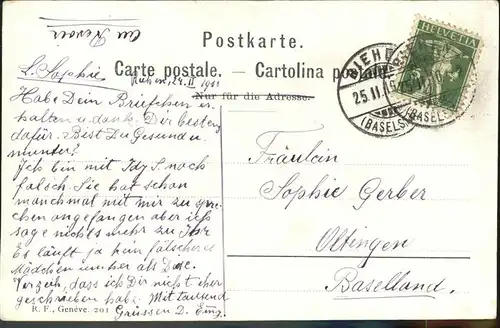 Au Revoir
Postkarte.
Carte postale. — Cartolina postale.
Nur für die Adresse.
HELVETIA
25.II.
(BASELST
(BASELST
L. Sophie
Riehen, 24. II 1911
Habe Dein Briefchen er-
halten u. dank. Dir bestens
dafür. Bist Du Gesund u.
munter?
Ich bin mit Idy S. noch
falsch. Sie hat schon
manchmal mit mir zu spre-
chen angefangen aber ich
sage nichts mehr zu Ihr
Es läuft ja kein fälscheres
Mädchen umher als Diese.
Verzeih, dass ich Dir nicht eher
geschrieben habe. Mit tausend
Grüssen D.
Fräulein
Sophie Gerber
Oltingen
Baselland.
R. F., Genève. 201